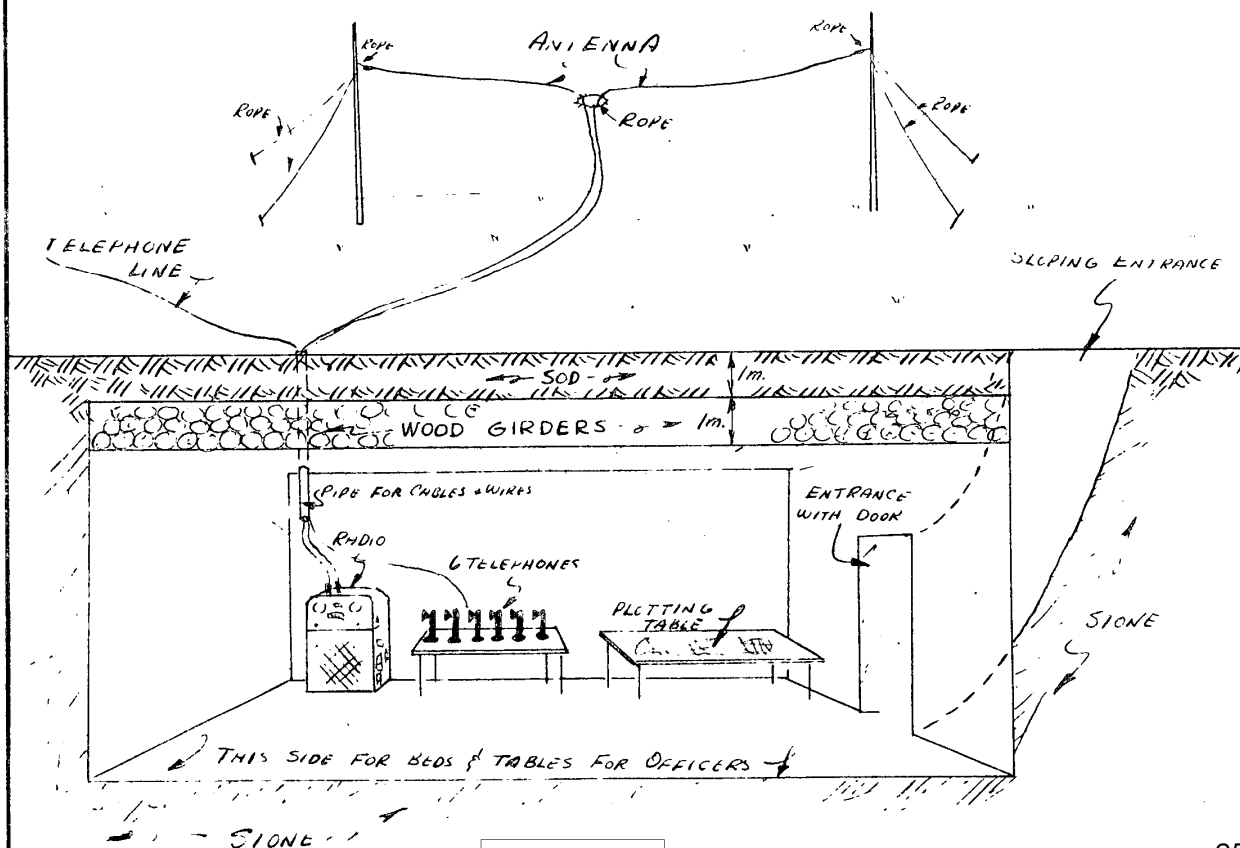 ROPE
ANTENNA
ROPE
ROPE
ROPE
ROPE
TELEPHONE
LINE
SLOPING ENTRANCE
SOD
1m.
WOOD GIRDERS
1m.
PIPE FOR CABLES & WIRES
ENTRANCE
WITH DOOR
RADIO
6 TELEPHONES
PLOTTING
TABLE
STONE
THIS SIDE FOR BEDS & TABLES FOR OFFICERS
STONE